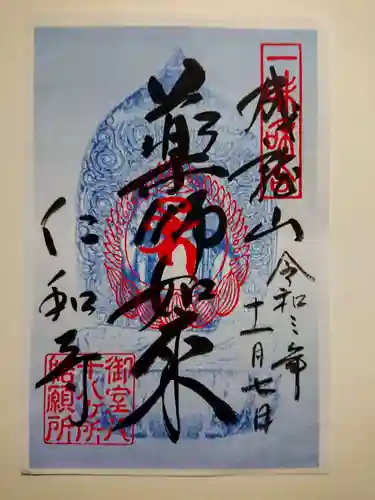 成就山
令和三年
十一月七日
薬師如来
仁和寺
御室八
十八ヶ所
結願所